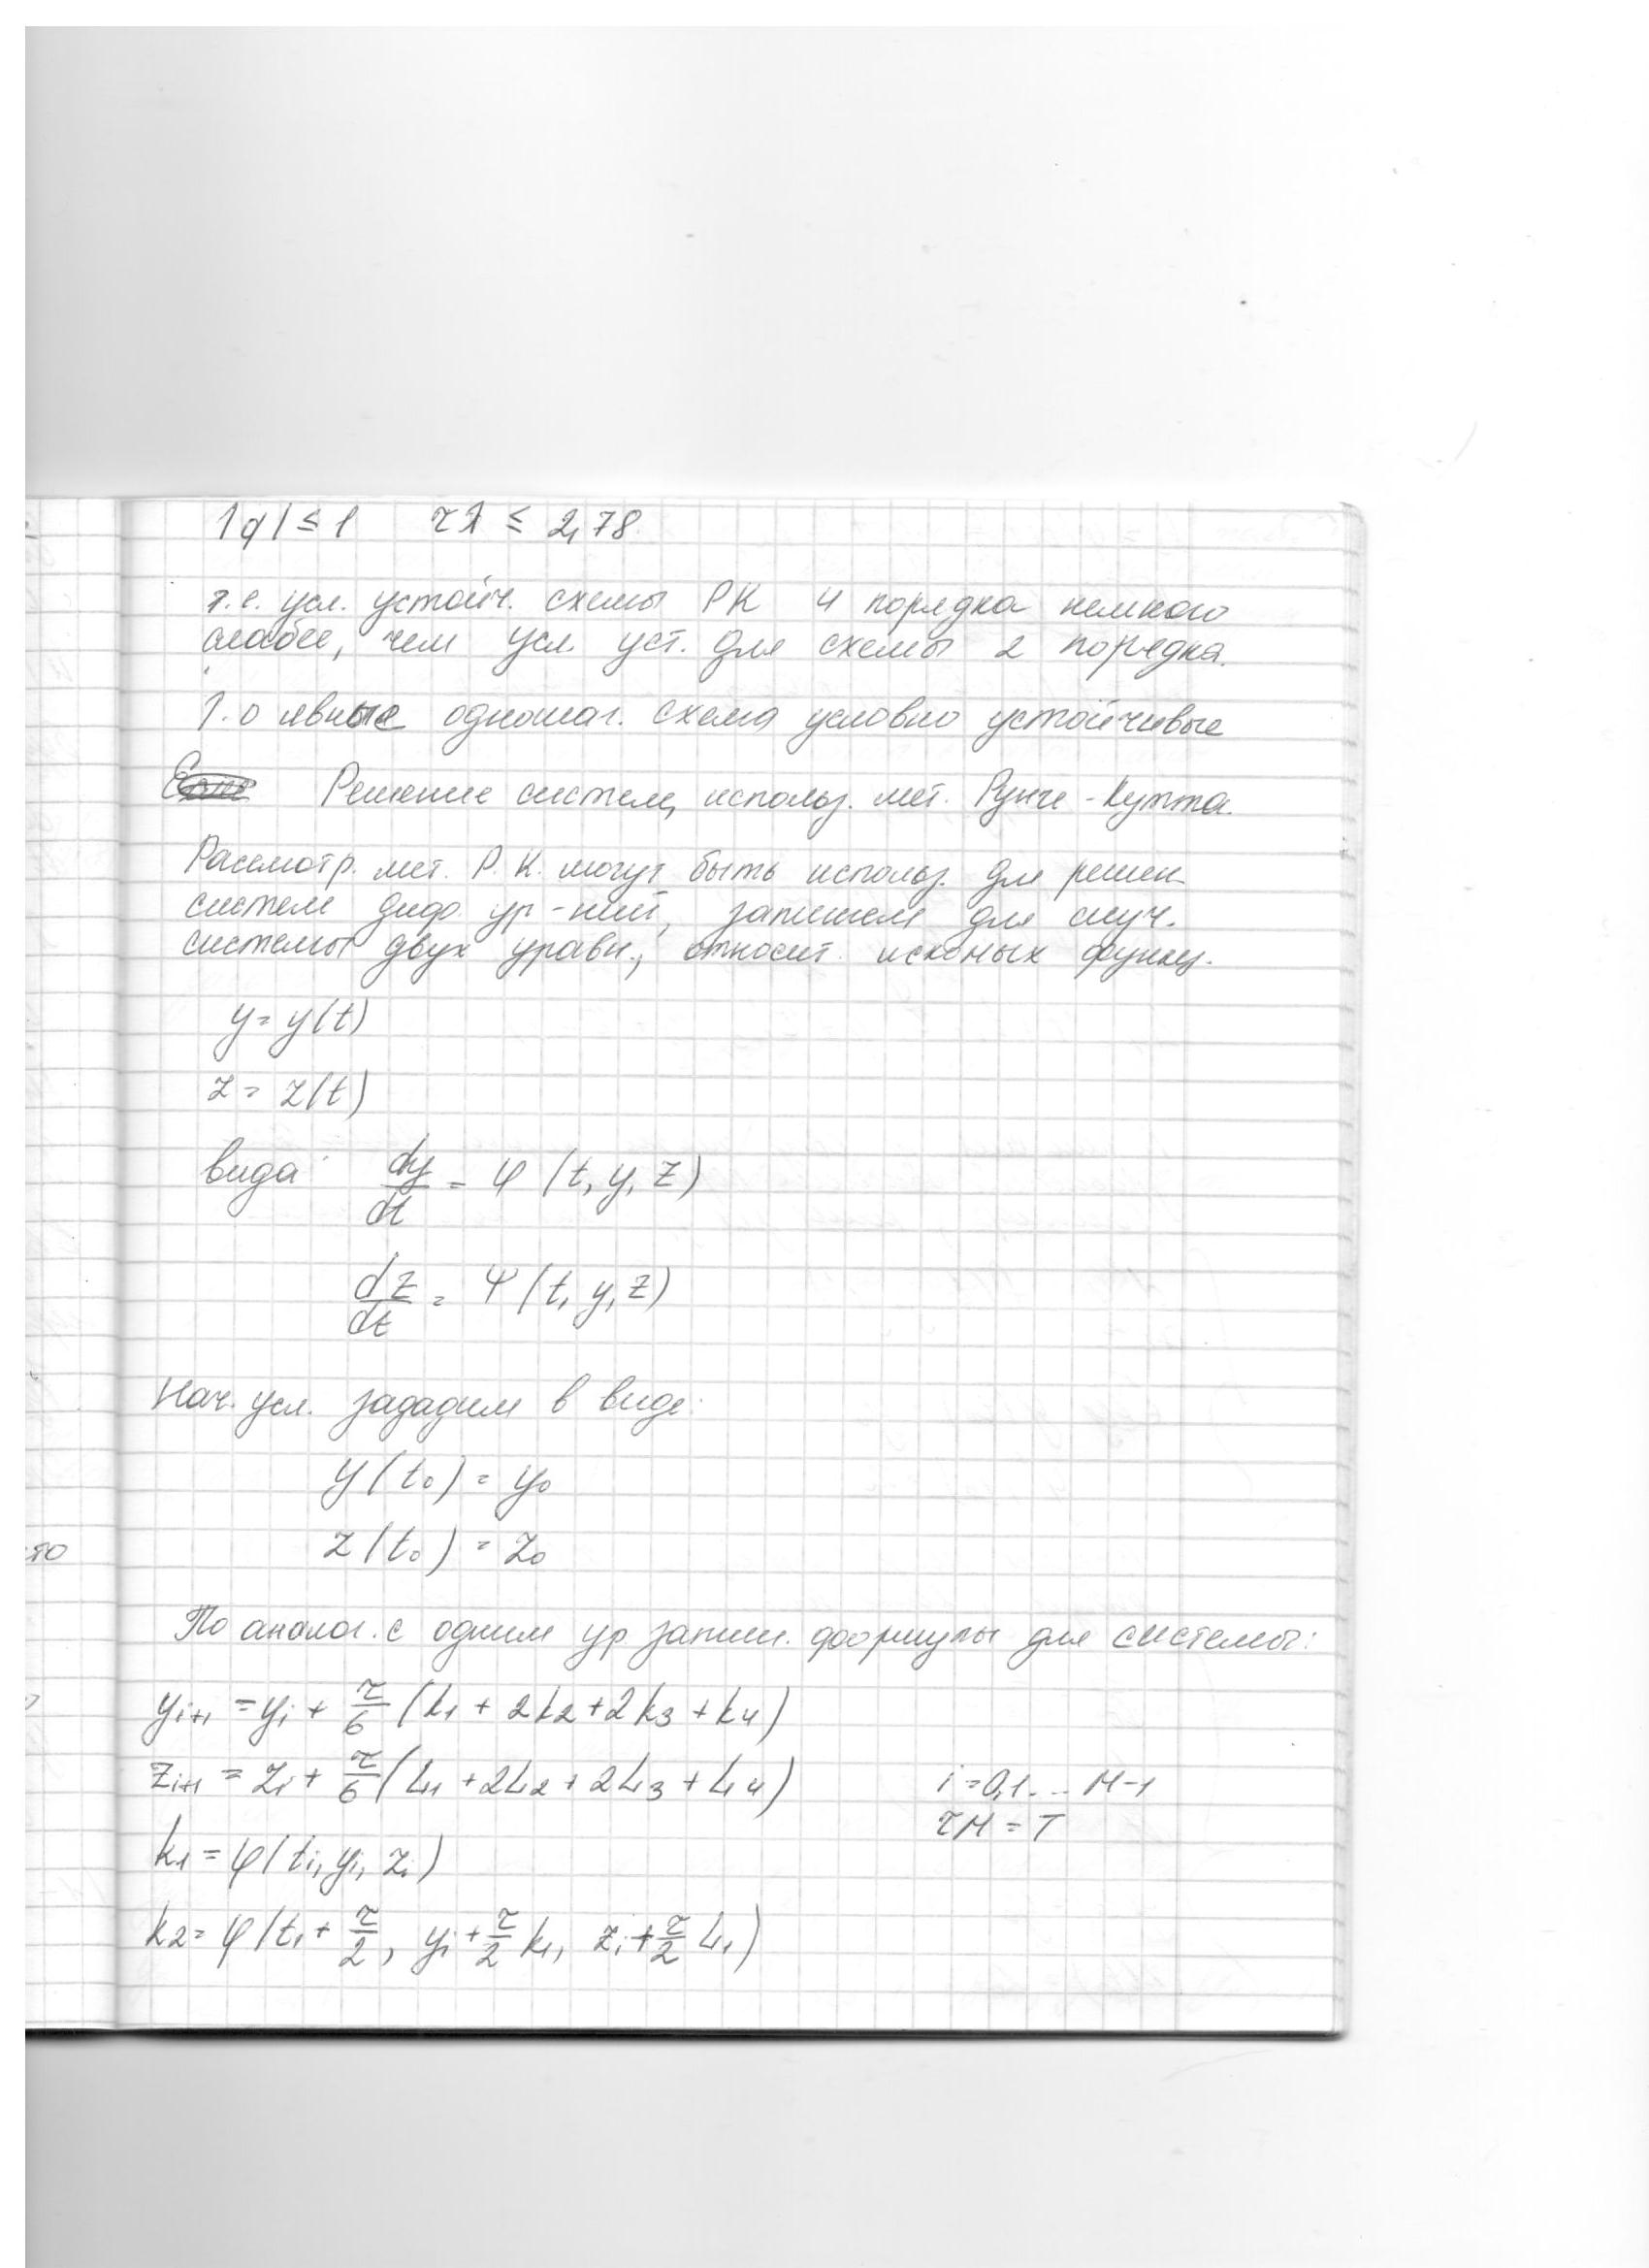 |q| ≤ 1 τλ ≤ 2,78
т.е. усл. устойч. схемы РК 4 порядка немного
слабее, чем усл. уст. для схемы 2 порядка.
Т.о явные одношаг. схема условно устойчивые
Решение систем, использ. мет. Рунге-Кутта.
Рассмотр. мет. Р.К. могут быть использ. для решен
систем диф. ур-ний, запишем для случ.
системы двух уравн., относит. искомых функц.
y = y(t)
z = z(t)
вида: dy/dt = φ (t, y, z)
dz/dt = Ψ (t, y, z)
Нач. усл. зададим в виде:
y(t₀) = y₀
z(t₀) = z₀
По аналог. с одним ур. запиш. формулы для системы:
yᵢ₊₁ = yᵢ + τ/6 (k₁ + 2k₂ + 2k₃ + k₄)
zᵢ₊₁ = zᵢ + τ/6 (L₁ + 2L₂ + 2L₃ + L₄) i = 0,1... M-1
τM = T
k₁ = φ(tᵢ, yᵢ, zᵢ)
k₂ = φ(t₁ + τ/2, yᵢ + τ/2 k₁, zᵢ + τ/2 L₁)